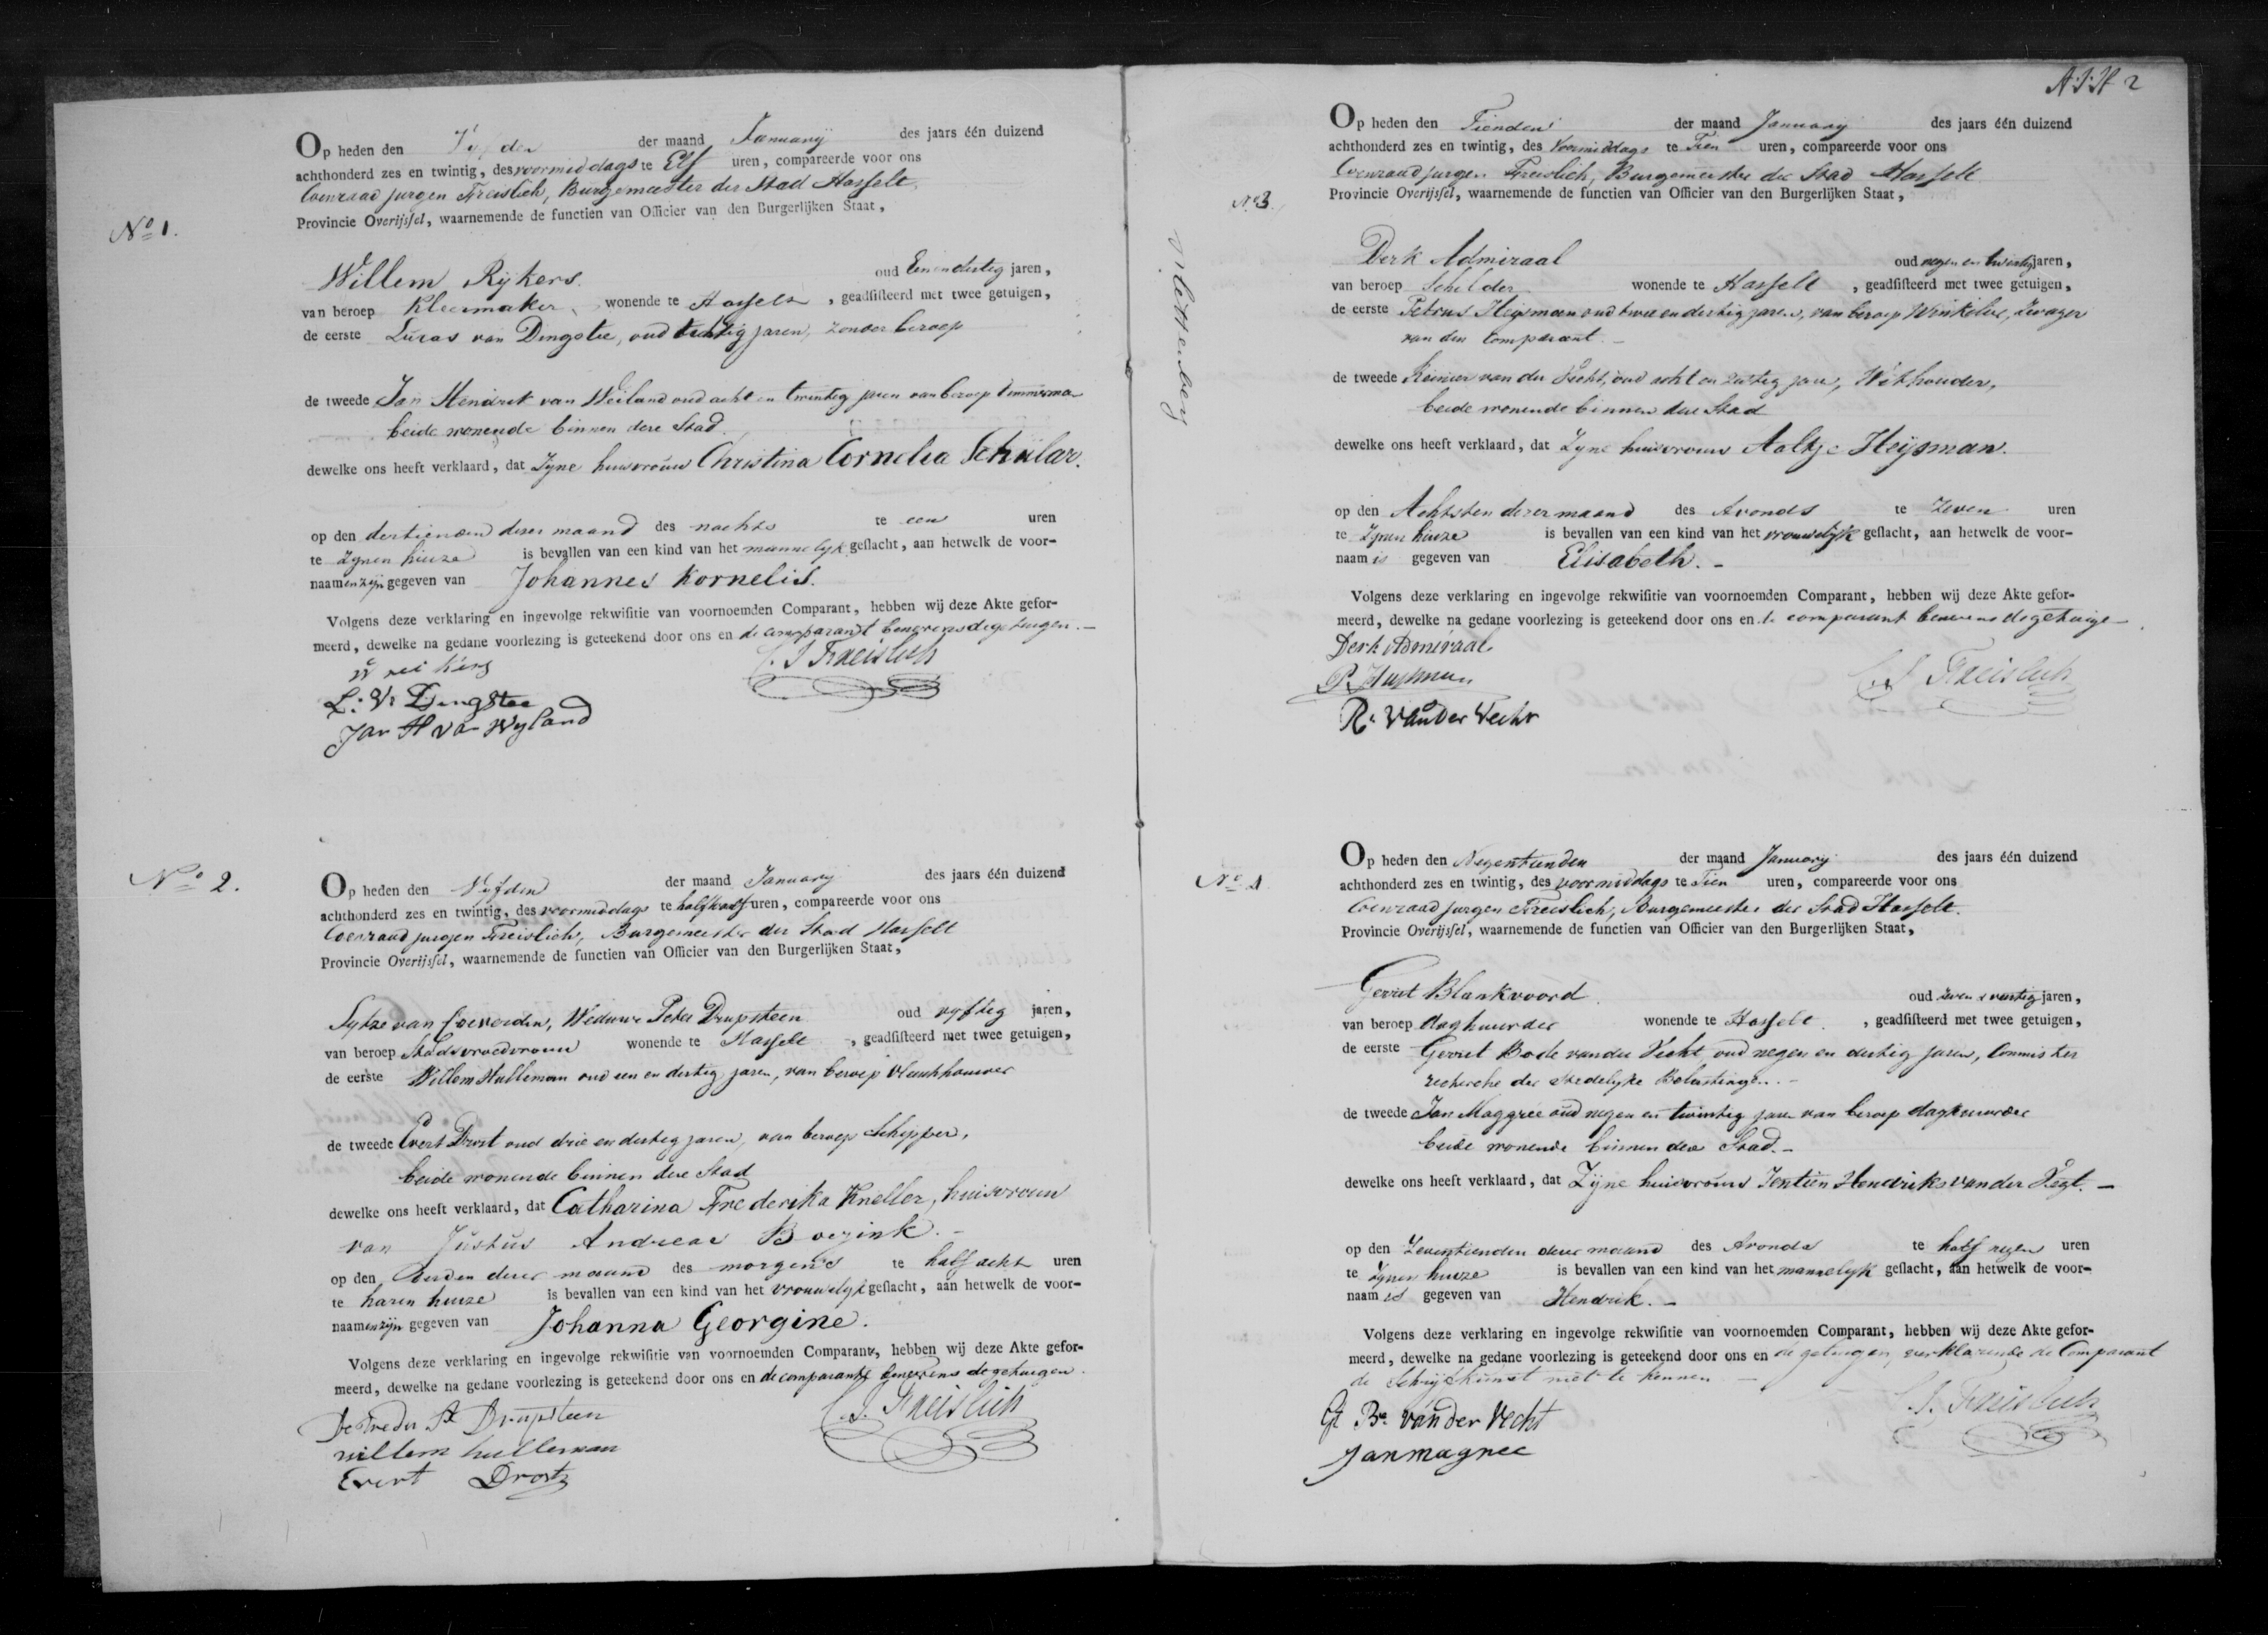 No 1.
Op heden den Vyfden der maand January des jaars één duizend
achthonderd zes en twintig, des voormiddags te Elf uren, compareerde voor ons
Coenraad jurgen Freislich, Burgemeester der Stad Hasselt
Provincie Overijssel, waarnemende de functien van Officier van den Burgerlijken Staat,
Willem Rykers. oud Een en dertig jaren,
van beroep Kleermaker wonende te Hasselt, geadsisteerd met twee getuigen,
de eerste Lucas van Dingstee, oud tachtig jaren, zonder beroep
de tweede Jan Hendrik van Weiland oud acht en twintig jaren van beroep timmerman
beide wonende binnen deze Stad
dewelke ons heeft verklaard, dat Zyne huisvrouw Christina Cornelia Schülar.
op den dertienden dezer maand des nachts te een uren
te Zynen huize is bevallen van een kind van het mannelyk geslacht, aan hetwelk de voor-
naam en zyn gegeven van Johannes Kornelis.
Volgens deze verklaring en ingevolge rekwisitie van voornoemden Comparant, hebben wij deze Akte gefor-
meerd, dewelke na gedane voorlezing is geteekend door ons en de comparant benevens de getuigen.
C. J. Freislich
L: V: Dingstee
Jan H van Wyland
No 2.
Op heden den Vyfden der maand January des jaars één duizend
achthonderd zes en twintig, des voormiddags te half twaalf uren, compareerde voor ons
Coenraad jurgen Freislich, Burgemeester der Stad Hasselt
Provincie Overijssel, waarnemende de functien van Officier van den Burgerlijken Staat,
Sytze van Coeverden, Weduwe Peter Drupsteen oud vyftig jaren,
van beroep Stadsvroedvrouw wonende te Hasselt, geadsisteerd met twee getuigen,
de eerste Willem Hulleman oud een en dertig jaren, van beroep Vleeschhouwer
de tweede Evert Drost oud drie en dertig jaren, van beroep Schipper,
beide wonende binnen deze Stad
dewelke ons heeft verklaard, dat Catharina Frederika Kneller, huisvrouw
van Justus Andreas Boezink.
op den derden dezer maand des morgens te half acht uren
te haren huize is bevallen van een kind van het vrouwelyk geslacht, aan hetwelk de voor-
naam en zyn gegeven van Johanna Georgine.
Volgens deze verklaring en ingevolge rekwisitie van voornoemden Comparante, hebben wij deze Akte gefor-
meerd, dewelke na gedane voorlezing is geteekend door ons en de comparante benevens de getuigen.
C. J. Freislich
Drupsteen
willem hulleman
Evert Drost
A.J.H 2
No 3.
Op heden den Tienden der maand January des jaars één duizend
achthonderd zes en twintig, des Voormiddags te Tien uren, compareerde voor ons
Coenraad jurgen Freislich, Burgemeester der Stad Hasselt
Provincie Overijssel, waarnemende de functien van Officier van den Burgerlijken Staat,
Derk Admiraal oud negen en twintig jaren,
van beroep Schilder wonende te Hasselt, geadsisteerd met twee getuigen,
de eerste Petrus Heysman oud twee en dertig jaren, van beroep Winkelier, Zwager
van den Comparant.
de tweede Reinier van der Vecht, oud acht en zestig jaren, Wethouder,
beide wonende binnen deze Stad
dewelke ons heeft verklaard, dat Zyne huisvrouw Aaltje Heysman.
op den Achtsten dezer maand des Avonds te Zeven uren
te Zynen huize is bevallen van een kind van het vrouwelyk geslacht, aan hetwelk de voor-
naam is gegeven van Elisabeth.
Volgens deze verklaring en ingevolge rekwisitie van voornoemden Comparant, hebben wij deze Akte gefor-
meerd, dewelke na gedane voorlezing is geteekend door ons en de comparant benevens de getuigen
Derk Admiraal
P. Heysman
C. J. Freislich
R: Van der Vecht
No 4
Op heden den Negentienden der maand January des jaars één duizend
achthonderd zes en twintig, des voormiddags te Tien uren, compareerde voor ons
Coenraad jurgen Freislich, Burgemeester der Stad Hasselt.
Provincie Overijssel, waarnemende de functien van Officier van den Burgerlijken Staat,
Gerrit Blankvoord oud jaren,
van beroep daghuurder wonende te Hasselt, geadsisteerd met twee getuigen,
de eerste Gerrit Bode van der Vecht, oud negen en dertig jaren, Commis ter
recherche der Stedelyke Belastingen.
de tweede Jan Maggree oud negen en twintig jaren van beroep daghuurder
beide wonende binnen deze Stad.
dewelke ons heeft verklaard, dat Zyne huisvrouw Jentien Hendriks van der Vegt.
op den Zeventienden dezer maand des Avonds te half negen uren
te Zynen huize is bevallen van een kind van het mannelyk geslacht, aan hetwelk de voor-
naam is gegeven van Hendrik.
Volgens deze verklaring en ingevolge rekwisitie van voornoemden Comparant, hebben wij deze Akte gefor-
meerd, dewelke na gedane voorlezing is geteekend door ons en de getuigen, verklarende de Comparant
de Schryfkunst niet te kennen
Gt Be van der Vecht
C. J. Freislich
Jan magree